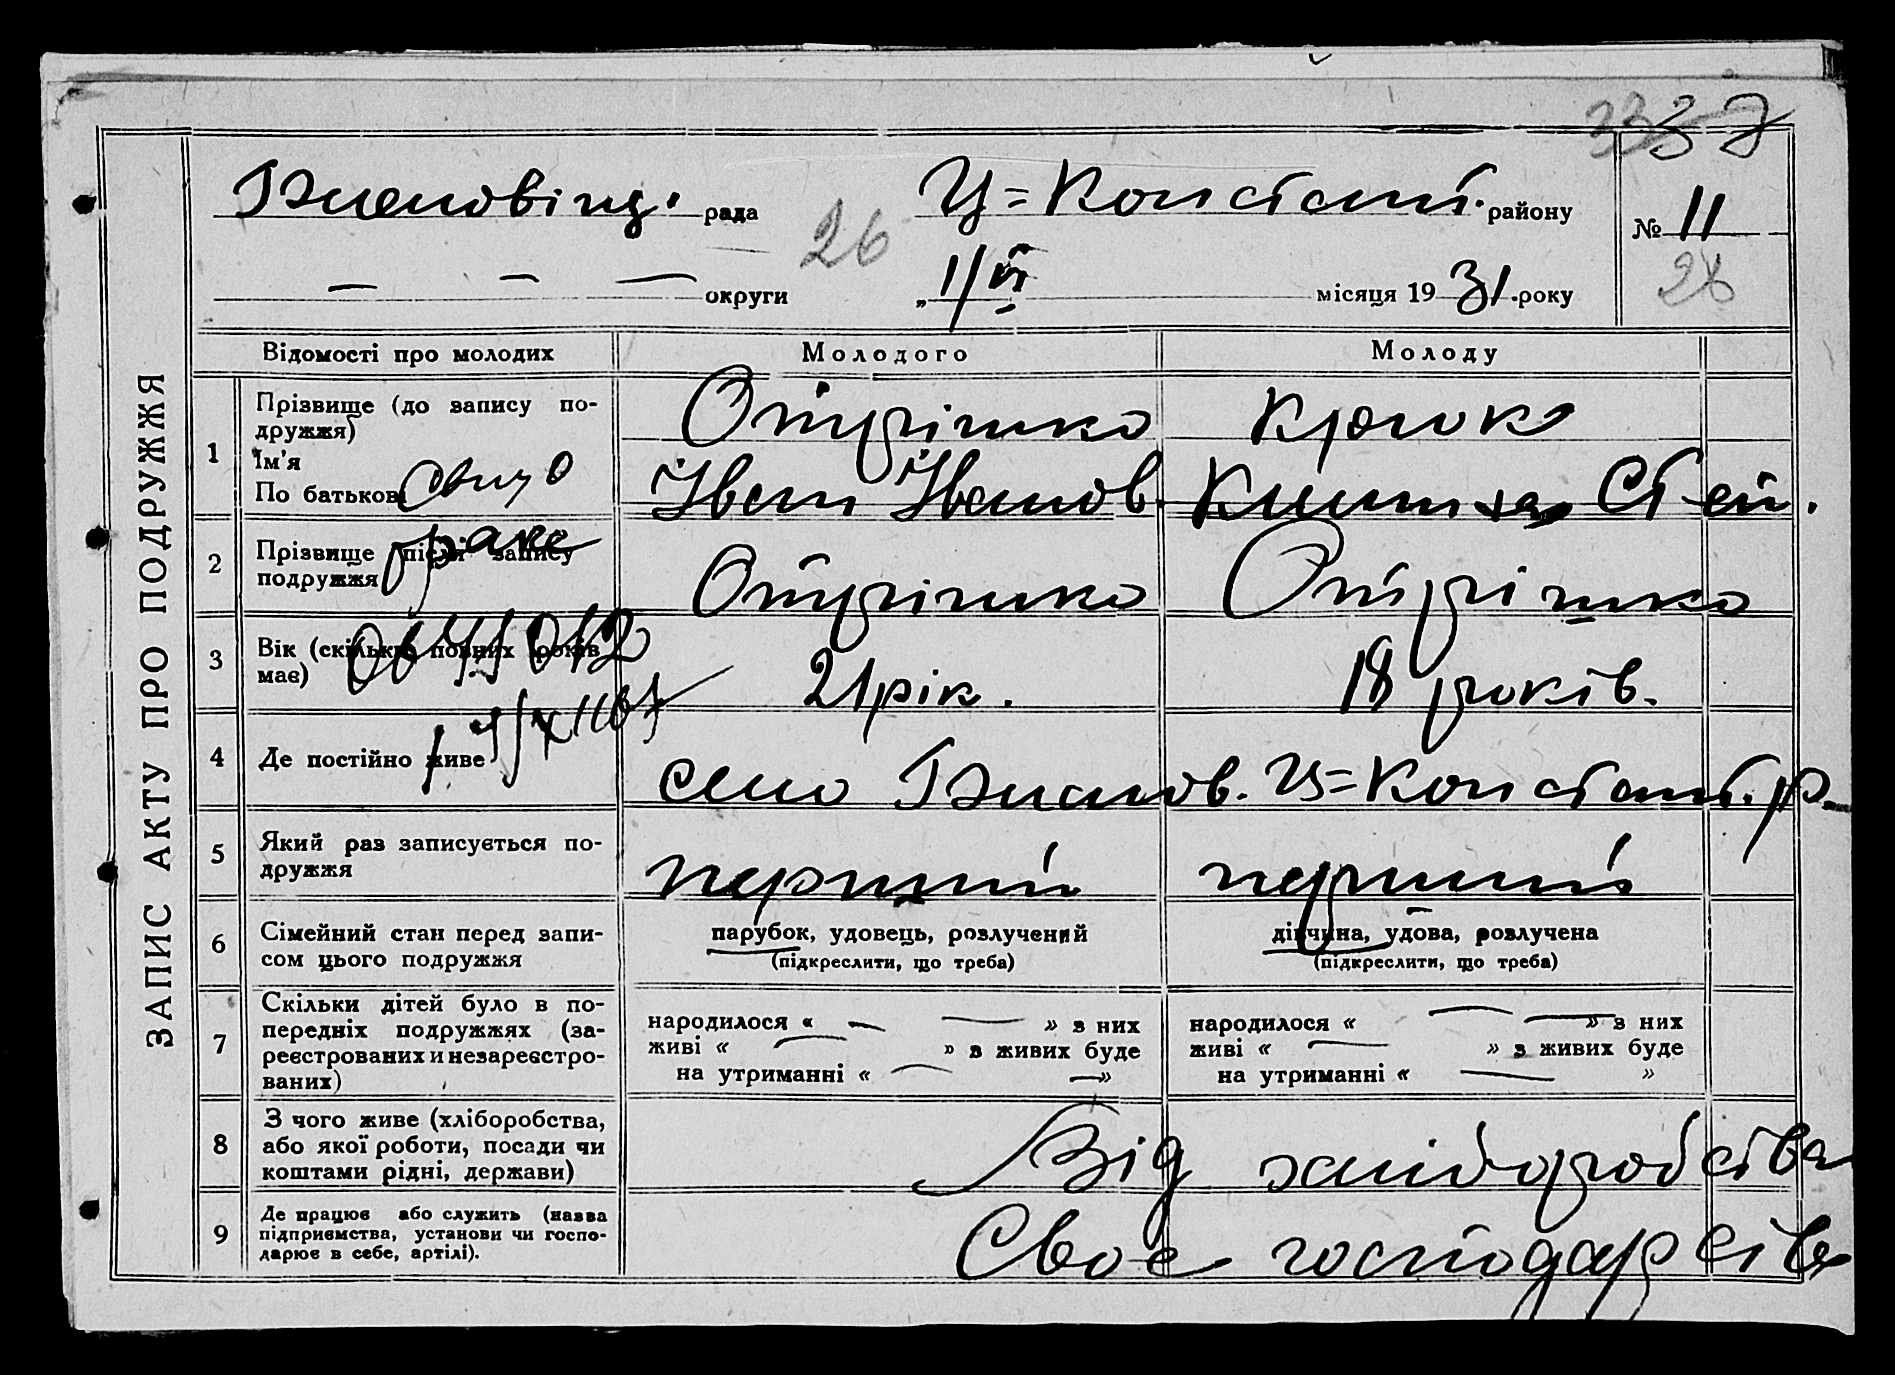 ЗАПИС АКТУ ПРО ПОДРУЖЖЯ
337
рада Ц=Констант. району
№ 11
26
— — — округи „1/VI місяця 1931.року
26
Відомості про молодих Молодого Молоду
1 Прізвище (до запису по-
дружжя)
Ім'я
По батькові
Отрішко Крюк
Іван Іванов. Степ.
2 Прізвище після запису
подружжя
Отрішко Отрішко
3 Вік (скільки повних років
має)
21 рік. 18 років.
4 Де постійно живе
село Ц=Констант. р.
5 Який раз записується по-
дружжя
перший перший
6 Сімейний стан перед запи-
сом цього подружжя
парубок, удовець, розлучений дівчина, удова, розлучена
(підкреслити, що треба) (підкреслити, що треба)
7 Скільки дітей було в по-
передніх подружжях (за-
реєстрованих и незареєстро-
ваних)
народилося « — — » з них народилося « — — » з них
живі « — » з живих буде живі « — » з живих буде
на утриманні « — — » на утриманні « — »
8 З чого живе (хліборобства,
або якої роботи, посади чи
коштами рідні, держави)
Від хліборобства
9 Де працює або служить (назва
підприємства, установи чи госпо-
дарює в себе, артілі).
Своє господарство